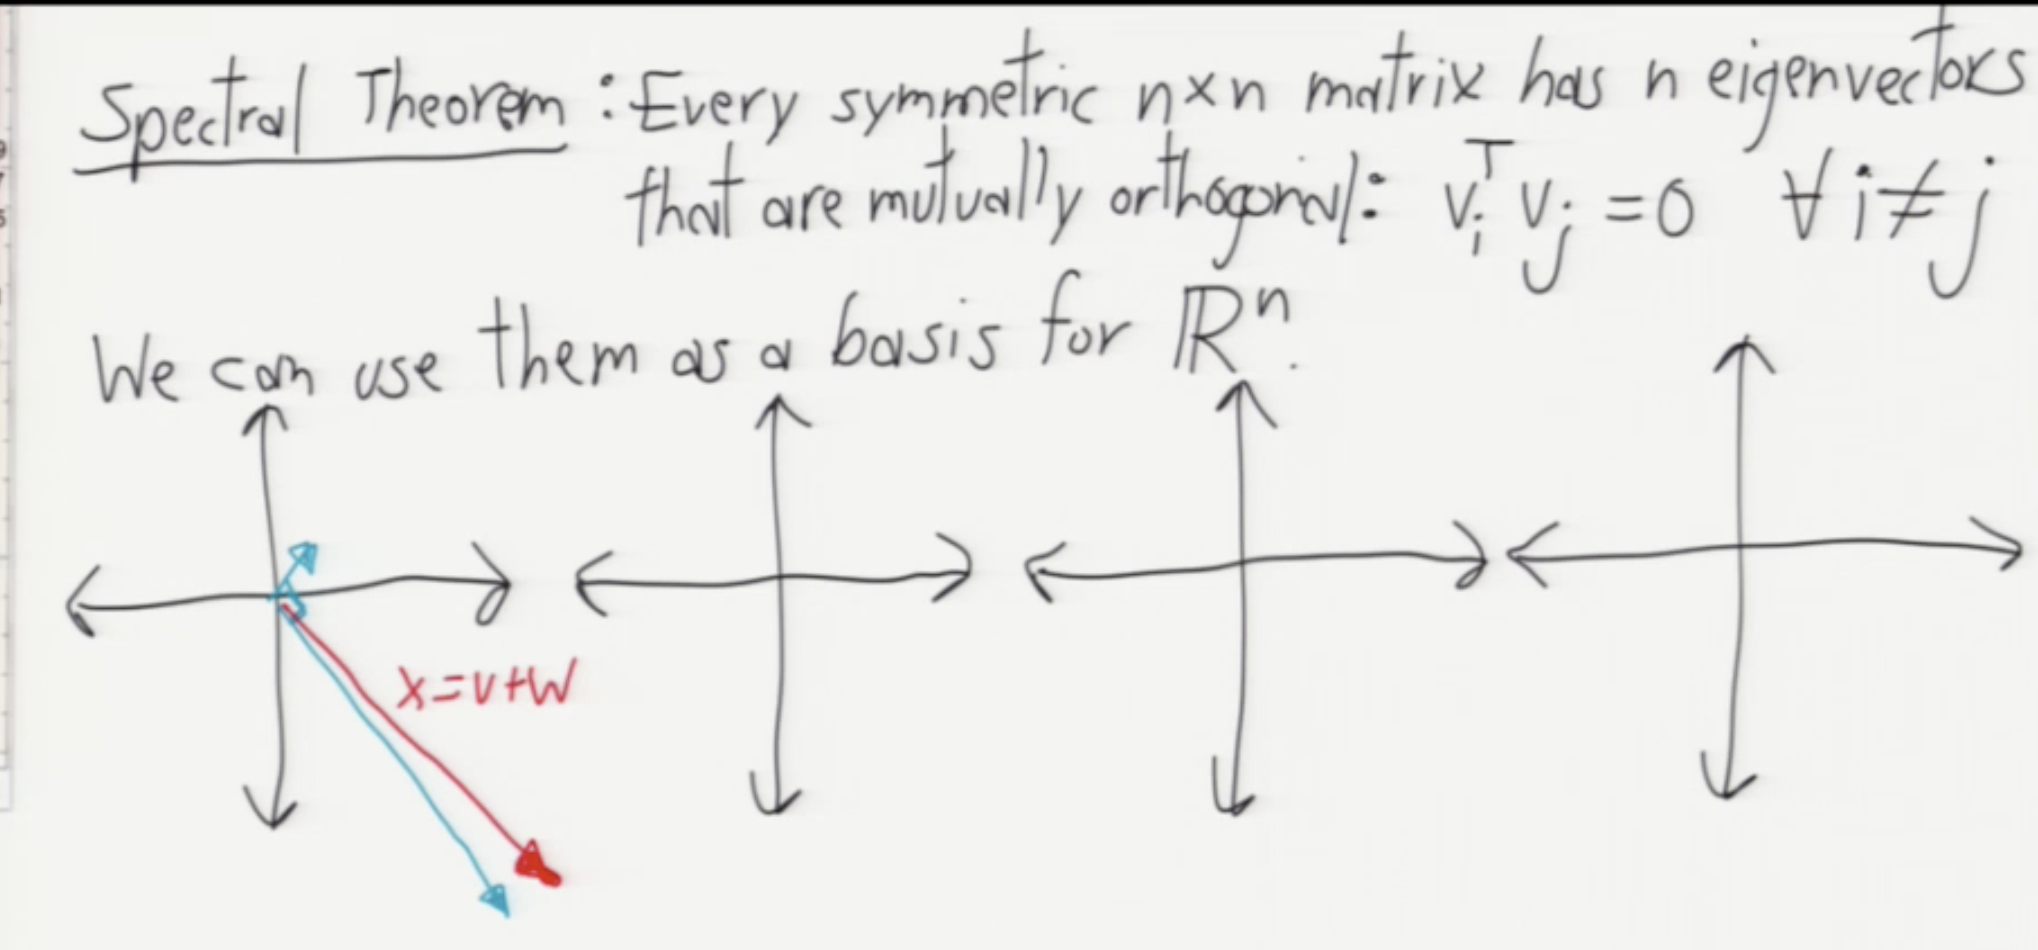 Spectral Theorem: Every symmetric n×n matrix has n eigenvectors
that are mutually orthogonal: vᵢᵀ vⱼ = 0 ∀ i ≠ j
We can use them as a basis for ℝⁿ.
x=v+w